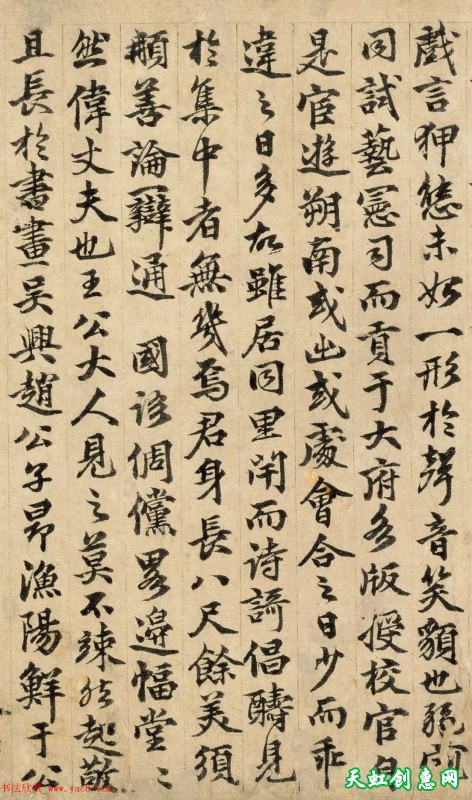 戲言狎態未始一形於聲音笑貌也
同試藝憲司而貢于大府各版授校官自
是宦遊朔南或出或處會合之日少而乖
違之日多故雖居同里閈而詩謌倡醻見
於集中者無幾焉君身長八尺餘美須
善論辯通 國語倜儻畧邊幅堂〻
然偉丈夫也王公大人見之莫不竦然起敬
且長於書畫吳興趙公子昂漁陽鮮于公
天虹创惠网
www.yac8.com